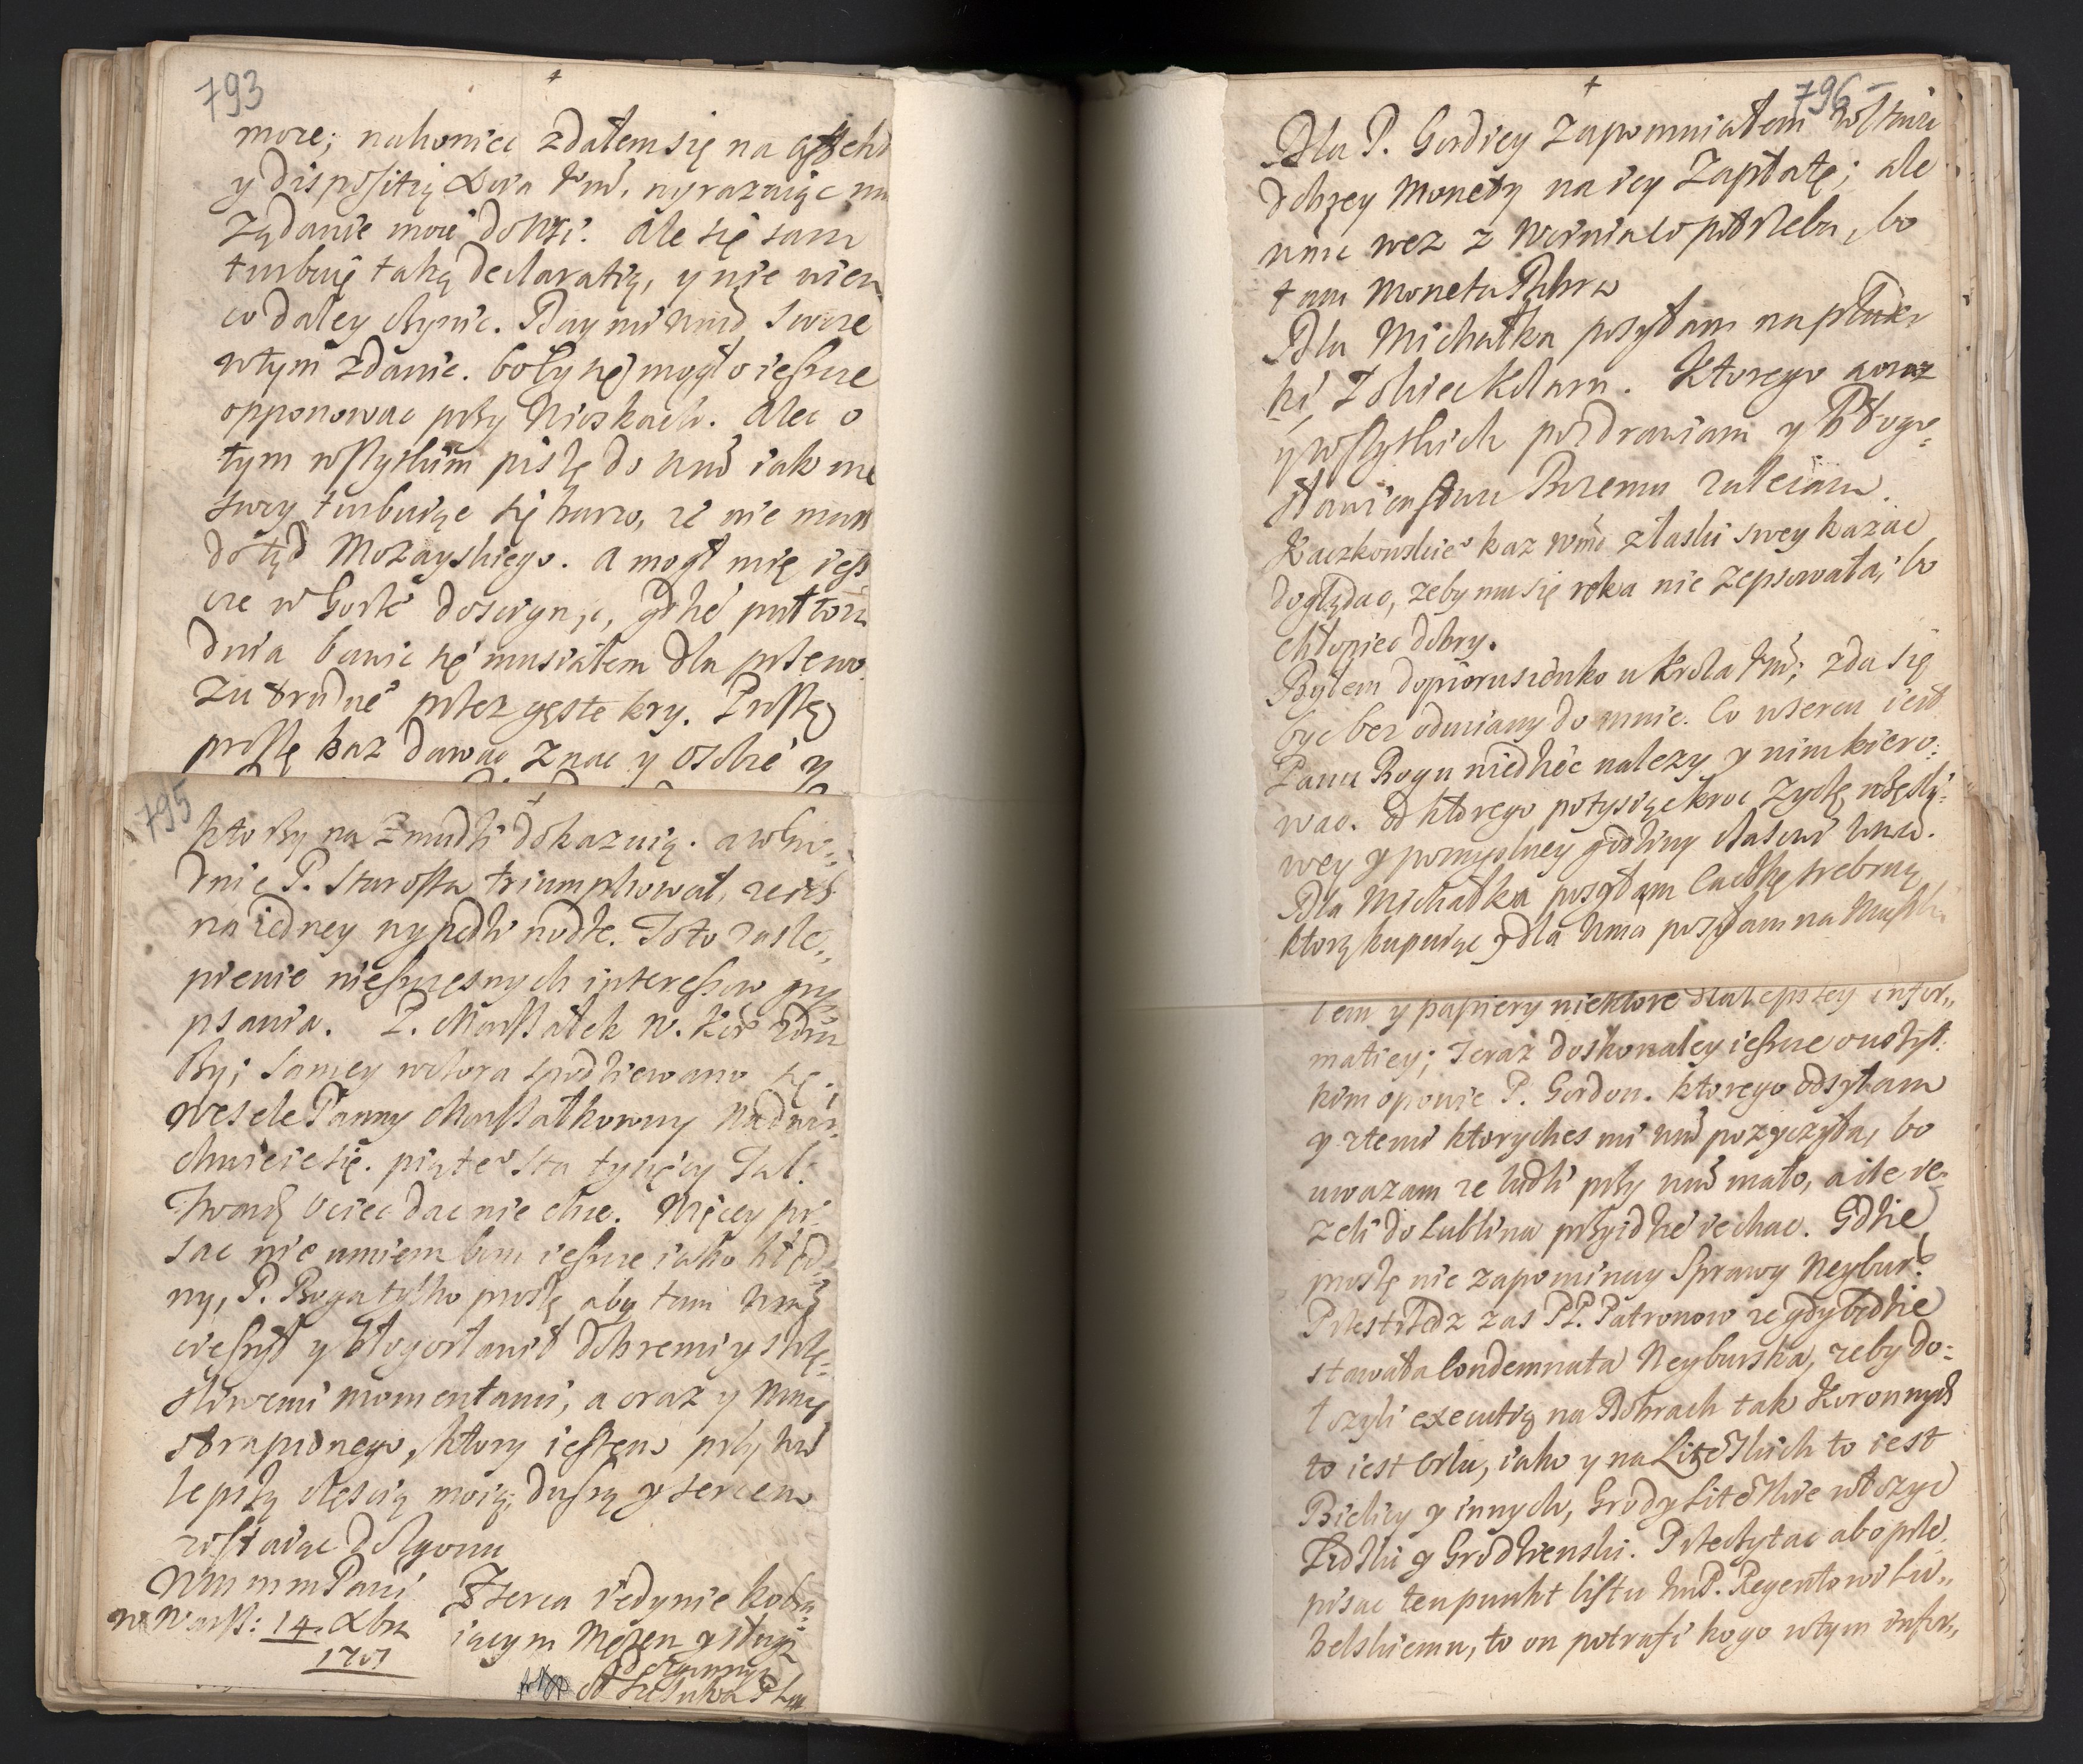 793
+
more; nakoniec zdałem się na
y dispositią Xcia Jmć, wyrazaiąc mu
Ządanie moie do Msi. Ale się sam
turbuię taką declaratią, y nie wiem
co daley czynic. Day mi Wmć swoie
wtym zdanie. boby się mogło ieszcze
opponowac przy Kioskach. Alec o
tym wszytkim piszę do Wmć iak me
swey turbuiąc się barzo, ze nie mam
dotąd Mozayskiego. A mogł mię iesz
cze w Gorze doscignąc, gdzie pułtora
dnia bawic się musiałem dla przewo
zu trudne° przez gęste kry. Proszę
proszę kaz dawac znac y osobie y
795
+
ktorzy na Zmudzi dokazuią. a w Gro„
dnie P. Starosta triumphował, ze ich
na iedney wypędzi wodze. Toto zasle„
pienie nieszczęsnych interessow przy
psowa. P. Marszałek W. Kor zdro
wszy; samey wczora spodziewano się.
wesele Panny Marszałkowny Nadwor:
chwieie się. piąte° sta tysięcy Tal:
Twardz Ociec dac nie chce. Więcey pi:
sac nie umiem bom ieszcze iako błęd
ny, P. Boga tylko proszę aby tam Wmć
cieszył y błogosławił dobremi y szczę:
sliwemi momentami, a oraz y mnie
strapionego, ktory iestem przy Wmć
lepszą częscią moią, duszą y sercem
zostaiąc do zgonu
Wm mm Pani
w Warsz: 14. Xbra
1701
Z serca iedynie kocha:
iącym Mężem y sługą
796
+
Dla P. Gordiey Zapomniałem zostawic
dobrey Monety na iey Zapłatę; ale
umie wez z Worniało potrzeba, bo
tam Moneta Dobra
Dla Michałka posyłam na
ki Zobieckdara. Ktorego zaraz
y wszytkich pozdrawiam y Błogo:
sławienstwu Bozemu zalecam.
Kaczkowskie° kaz Wmć złaski swey kazac
doglądac, zeby mu się ręka nie zepsowała, bo
chłopiec dobry.
Byłem dopiorusienko u Krola Jmć; zda się
byc bez odmiany do mnie. Co w sercu iest
Panu Bogu niedziec nalezy y nim kiero:
wac. od ktorego potysiąckroc zyczę szczęsli:
wey y pomyslney godziny czasowi Wmć.
Dla Michałka posyłam Cackę srebrną,
ktorą kupuiąc y dla Wmci posyłam na
łem y papiery niektore dla lepszey infor„
matiey; Teraz doskonaley ieszcze owszyt:
kim opowie P. Gordon. ktorego odsyłam
y ztemi ktoryches mi Wmć pozyczyła, bo
uwazam ze ludzi przy Wmć mało, a ile ie
zeli do Lublina przyidzie iechac. Gdzie
proszę nie zapominay Sprawy Neybur:
Przestrzedz zas PP. Patronow ze gdy będzie
stawała Condemnata Neyburska, zeby do:
łozyli executią na Dobrach tak Koronnych
to iest Orlu, iako y na Litewskich to iest
Bielicy y innych, Grody Litewskie włozyc
Lidzki y Grodzienski. Przeczytac abo prze
pisac ten punkt listu Wm P. Regentowi Lu„
belskiemu, to on potrafi kogo wtym infor„